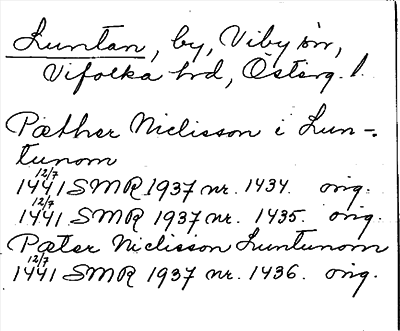 Luntan, by, Viby sn,
Vifolka hd, Österg. l.
Pæther Niclisson i Lun-
tunom
12/7
1441 SMR 1937 nr. 1434. orig.
12/7
1441 SMR 1937 nr. 1435. orig.
Pæter Niclisson Luntunom
12/7
1441 SMR 1937 nr. 1436. orig.